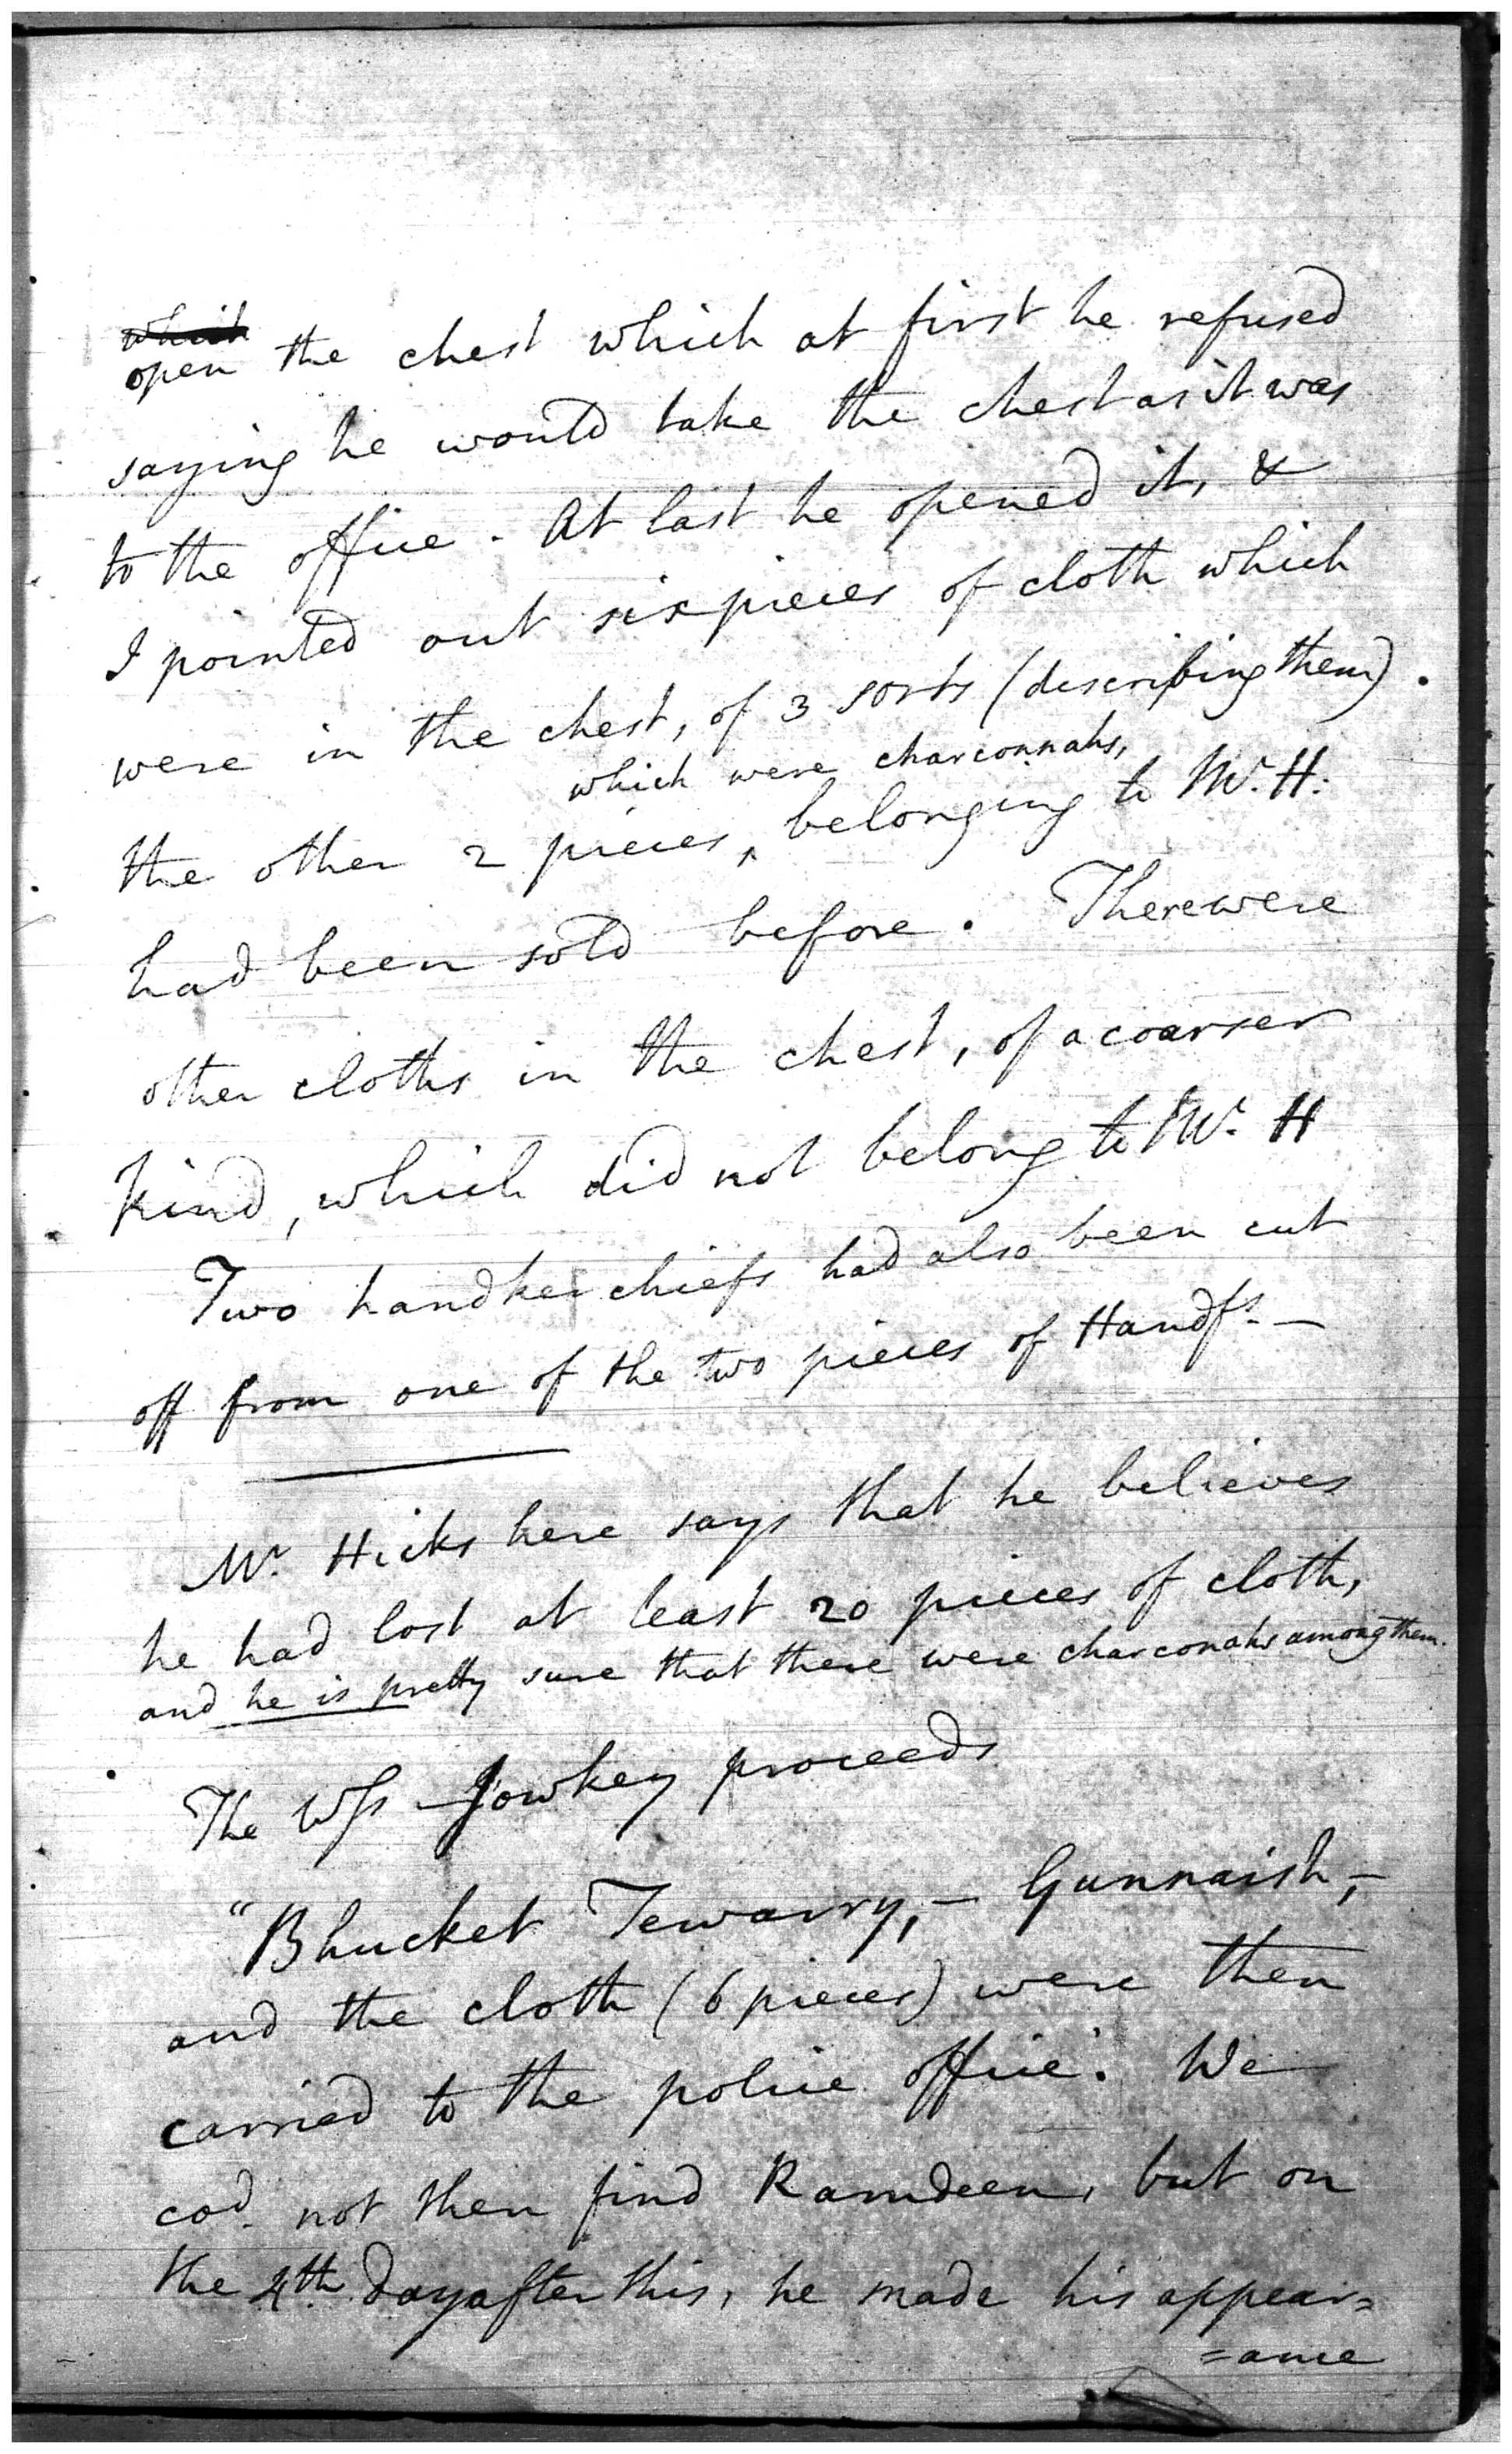 which
open the chest which at first he refused
saying he would take the chest as it was
to the office. At last he opened it, &
I pointed out six pieces of cloth which
were in the chest, of 3 sorts (describing them).
which were charconnahs,
the other 2 pieces, ^ belonging to Mr. H:
had been sold before. There were
other cloths in the chest, of a coarser
kind, which did not belong to Mr. H
Two handkerchiefs had also been cut
off from one of the two pieces of Handfs. —
Mr. Hicks here says that he believes
he had lost at least 20 pieces of cloth,
and he is pretty sure that there were charconahs among them.
The Wss Jowkey proceeds
"Bhucket Tewarry, — Gunnaish, —
and the cloth (6 pieces) were then
carried to the police office. We
cod. not then find Ramdeen, but on
the 4th day after this, he made his appear=
=ance